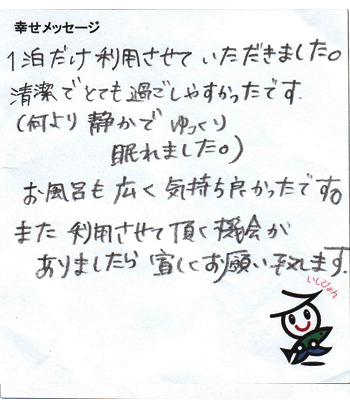 幸せメッセージ
1泊だけ利用させていただきました。
清潔でとても過ごしやすかったです.
(何より静かでゆっくり
眠れました。)
お風呂も広く気持ち良かったです。
また利用させて頂く機会が
ありましたら宜しくお願い致します.
いしぴょん